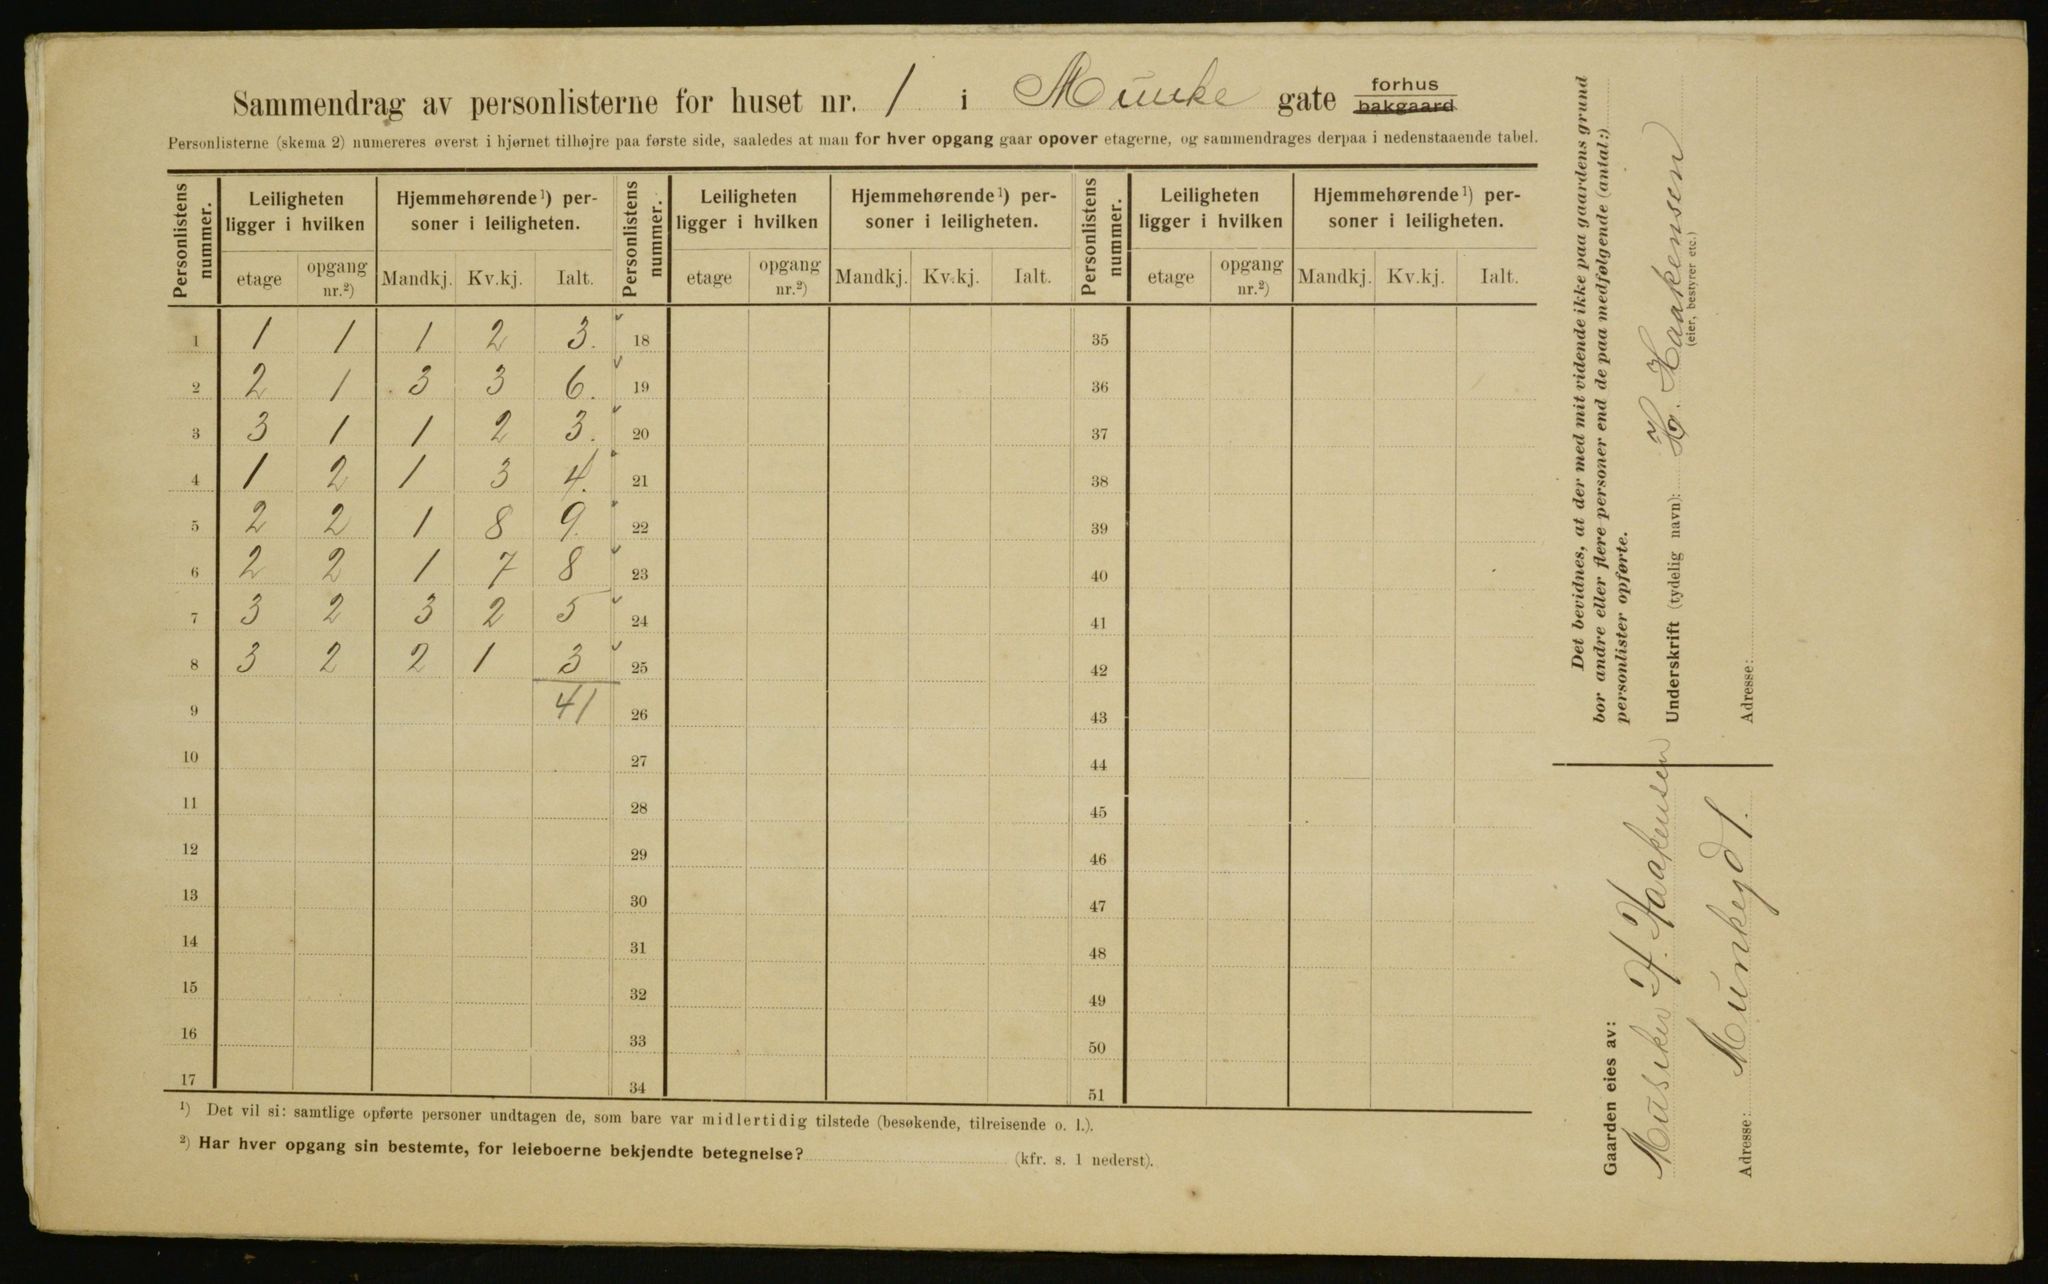 Sammendrag av personlisterne for huset nr. 1 i Munke gate forhus bakgaard
Personlisterne (skema 2) numereres øverst i hjørnet tilhøjre paa første side, saaledes at man for hver opgang gaar opover etagerne, og sammendrages derpaa i nedenstaaende tabel.
Personlistens nummer. Leiligheten ligger i hvilken Hjemmehørende¹) personer i leiligheten. Personlistens nummer. Leiligheten ligger i hvilken Hjemmehørende¹) personer i leiligheten. Personlistens nummer. Leiligheten ligger i hvilken Hjemmehørende¹) personer i leiligheten.
etage opgang nr.²) Mandkj. Kv.kj. Ialt. etage opgang nr.²) Mandkj. Kv.kj. Ialt. etage opgang nr.²) Mandkj. Kv.kj. Ialt.
1 1 1 1 2 3. 18 35
2 2 1 3 3 6. 19 36
3 3 1 1 2 3. 20 37
4 1 2 1 3 4. 21 38
5 2 2 1 8 9. 22 39
6 2 2 1 7 8 23 40
7 3 2 3 2 5 24 41
8 3 2 2 1 3 25 42
9 41 26 43
10 27 44
11 28 45
12 29 46
13 30 47
14 31 48
15 32 49
16 33 50
17 34 51
¹) Det vil si: samtlige opførte personer undtagen de, som bare var midlertidig tilstede (besøkende, tilreisende o. l.).
²) Har hver opgang sin bestemte, for leieboerne bekjendte betegnelse? (kfr. s. 1 nederst).
Det bevidnes, at der med mit vidende ikke paa gaardens grund
bor andre eller flere personer end de paa medfølgende (antal:)
personlister opførte.
Underskrift (tydelig navn): H. Haakensen
(eier, bestyrer etc.)
Adresse:
Gaarden eies av:
Musiker H. Haakensen
Adresse: Munkegd 1.